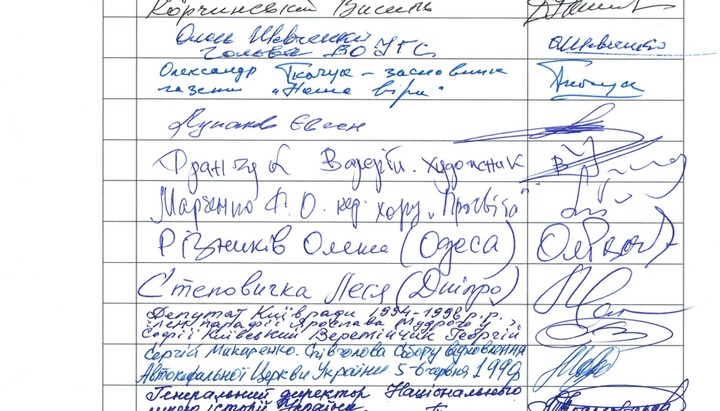 Корчинський Василь
Олесь Шевченко ОШевченко
голова ВО УГС
Олександр Ткачук – засновник Ткачук
газети „Наша віра“
Євген
Францук Валерій. художник
Марченко Ф. О. кер. хору „Просвіта“
Різників Олекса (Одеса)
Степовичка Леся (Дніпро)
Депутат Київради 1994-1998 р.р.
член парафії Ярослава Мудрого у
Софії Київській Веремійчик Георгій
Сергій Макаренко. Співголова Собору відновлення
Автокефальної Церкви України 5-6 червня 1990
Генеральний директор Національного
музею історії України